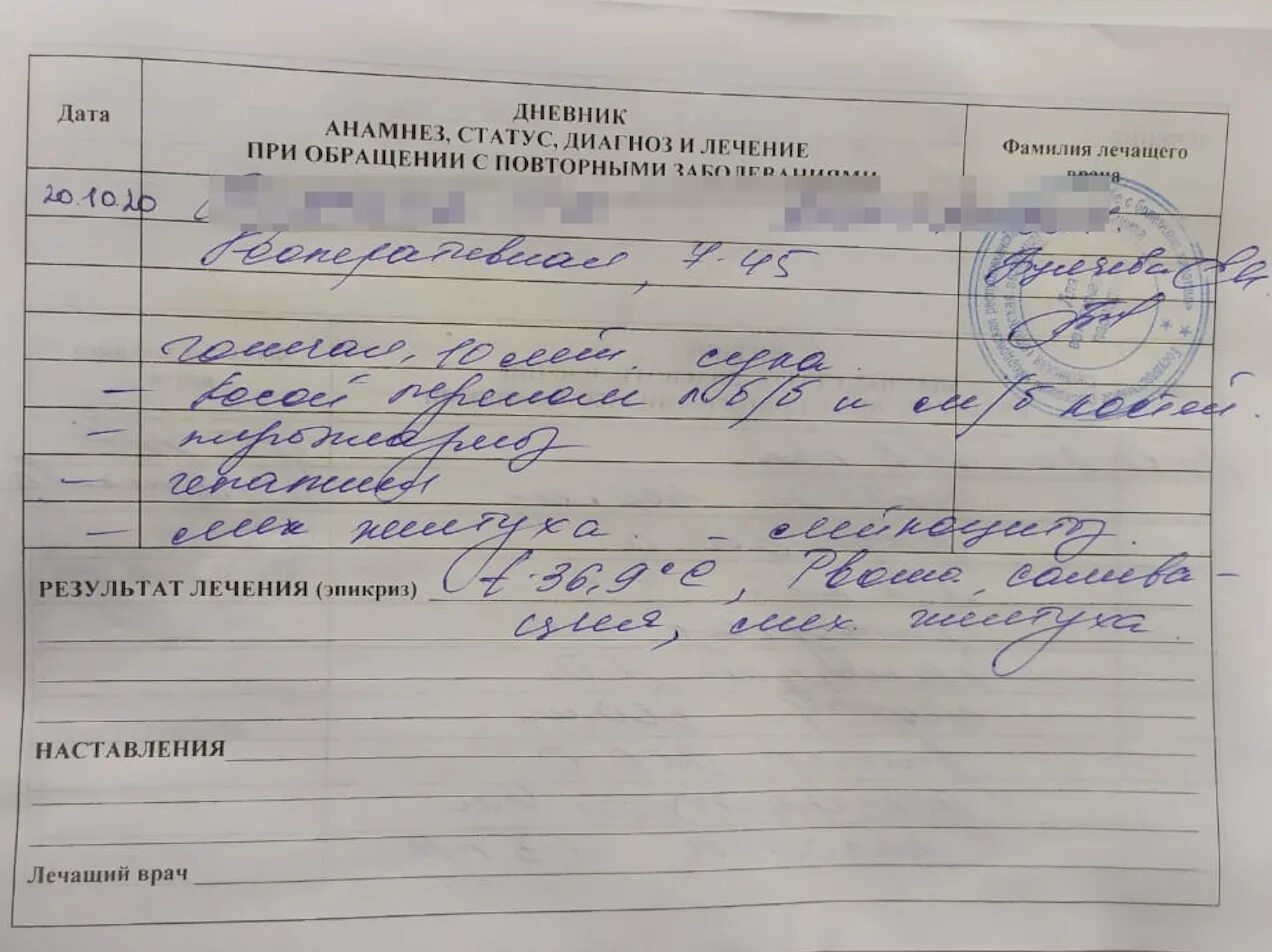 Дата
ДНЕВНИК
АНАМНЕЗ, СТАТУС, ДИАГНОЗ И ЛЕЧЕНИЕ
ПРИ ОБРАЩЕНИИ С ПОВТОРНЫМИ ЗАБОЛЕВАНИЯМИ
Фамилия лечащего
врача
20.10.20
Кооперативная, 7-45
гончая, 10 лет. сука
- косой перелом п б/б и м/б костей.
- пироплазмоз
- гепатит
- мех желтуха. - лейкоциты.
РЕЗУЛЬТАТ ЛЕЧЕНИЯ (эпикриз) t-36,9°С, Рвота, салива-
ция, мех. желтуха.
НАСТАВЛЕНИЯ
Лечащий врач